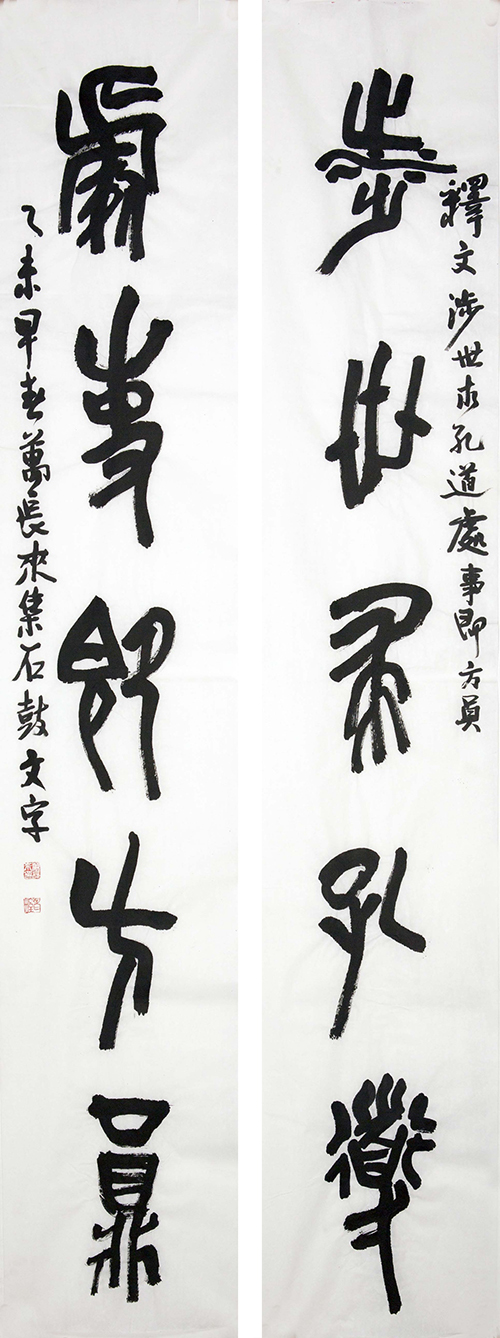 釋文涉世求孔道處事即方員
涉世求孔道
處事即方員
乙未早春萬長來集石鼓文字